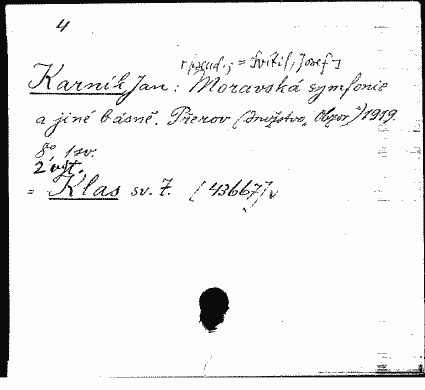 4
[pseud.; = Svítil, Josef]
Karník, Jan: Moravská symfonie
a jiné básně. Přerov (Družstvo „Obzor") 1919.
8° 1 sv.
2 výt.
= Klas sv. 7. [43667]